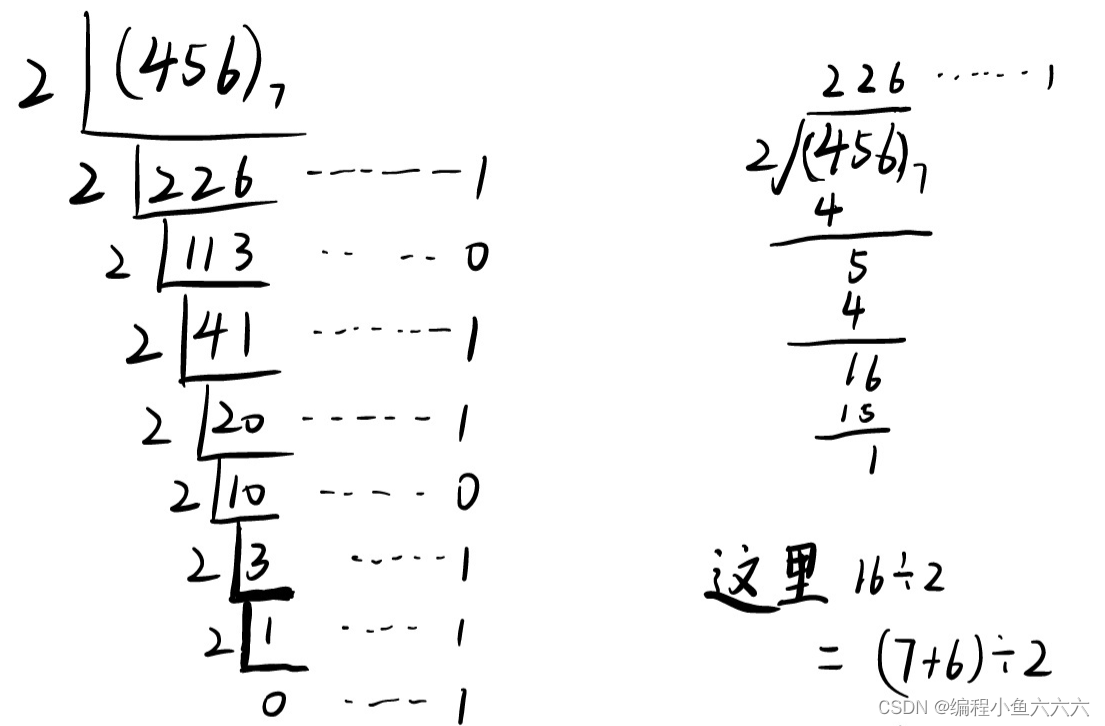 2 (456)₇
2 226 ······ 1
2 113 ···· 0
2 41 ······ 1
2 20 ······ 1
2 10 ····· 0
2 3 ····· 1
2 1 ···· 1
0 ···· 1
226 ······ 1
2 (456)₇
4
5
4
16
15
1
这里 16÷2
= (7+6)÷2
CSDN @编程小鱼六六六